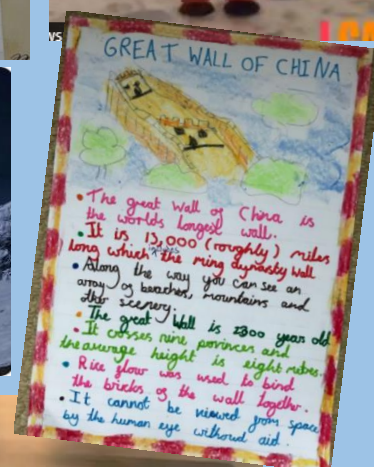 WS
GREAT WALL OF CHINA
• The great Wall of China is
the worlds longest wall.
• It is 13,000 (roughly) miles
long which the ming dynasty wall
• Along the way you can see an
array of beaches, mountains and
other scenery.
• The great Wall is 2300 year old
• It crosses nine porinces and
the average height is eight metres.
• Rice flow was used to bind
the bricks of the wall together.
• It cannot be viewed from space
by the human eye without aid.